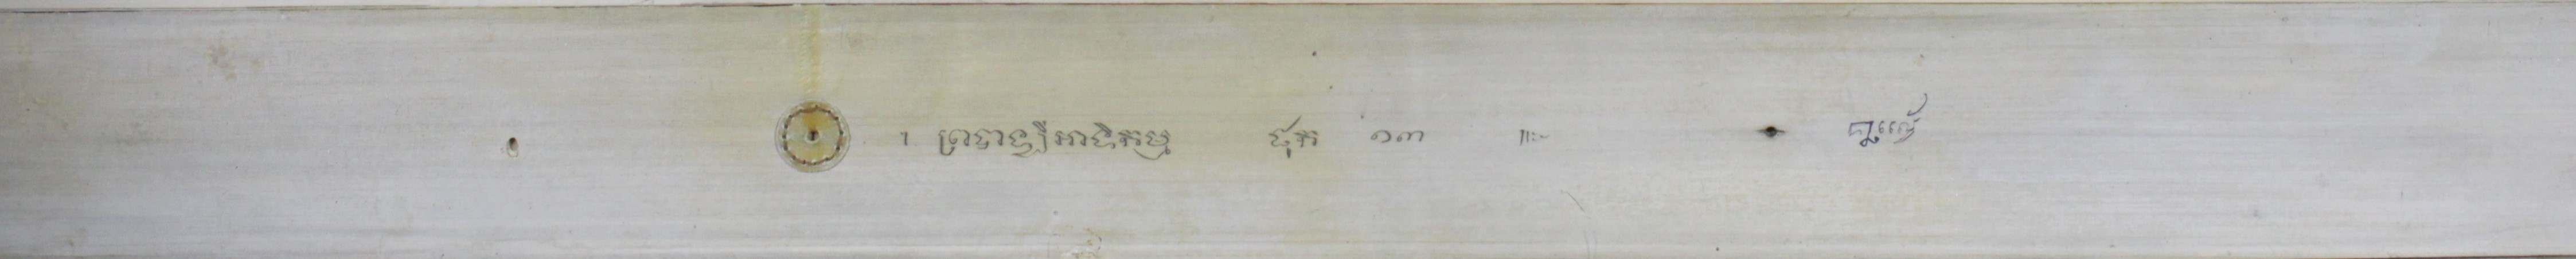 ។ ព្របាឡីអាទិកម្ម ផុក ១៣